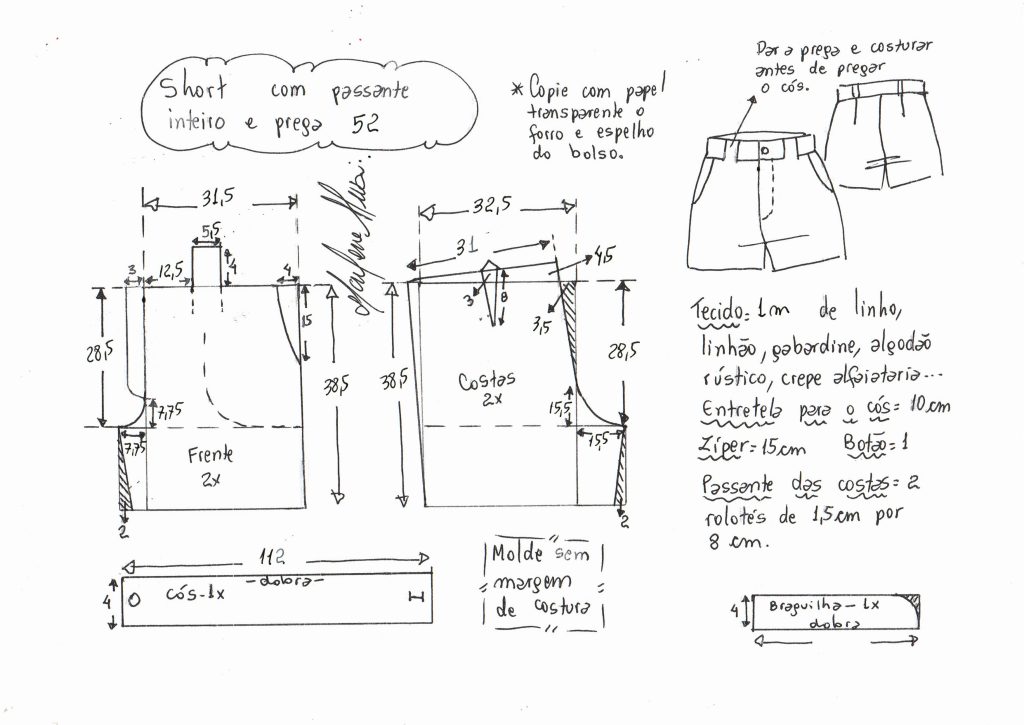 Short com passante
inteiro e prega 52
* Copie com papel
transparente o
forro e espelho
do bolso.
Dar a prega e costurar
antes de pregar
o cós.
31,5
5,5
4
3
12,5
4
15
28,5
38,5
7,75
7,75
Frente
2x
2
32,5
31
4,5
3
8
3,5
38,5
28,5
Costas
2x
15,5
15,5
2
Tecido = 1m de linho,
linhão, gabardine, algodão
rústico, crepe alfaiataria...
Entretela para o cós = 10cm
Zíper = 15cm Botão = 1
Passante das costas = 2
rolotés de 1,5cm por
8 cm.
112
dobra
4
Cós - 1x
Molde sem
margem
de costura
4
Braguilha - 1x
dobra